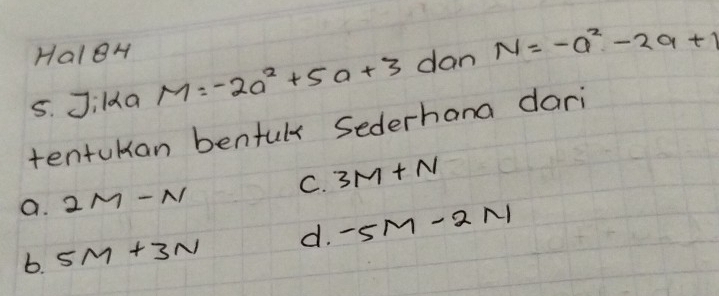 Hal 84
5. Jika M = -2a² + 5a + 3 dan N = -a² - 2a + 1
tentukan bentuk Sederhana dari
a. 2M - N
c. 3M + N
b. 5M + 3N
d. -5M - 2N